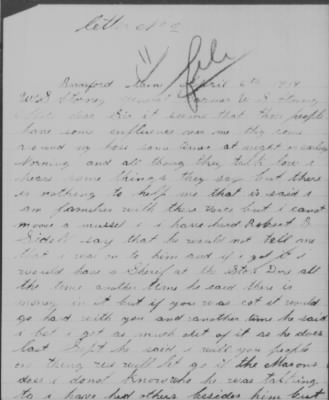 letter No 2
file
Rumford Maine April 6th 1918
W S Attorney General Warner W S Attorney
dear Sir it seems that these people
have some influence over me they come
around my hous some times at night or early
Morning and all though they talk low i
hear some things they say but there
is nothing to help me that is said i
am familier with there voice but i cant
moove a mussel i have heard Robert B
say that he would not tell me
that i was on to him and if i got it i
would have a Sheref at the Dore
all the time another time he said there is
money in it but if you was cot it would
go hard with you and another time he said
i but i got as much out of it as he does
last Sept he said i will you people
one thing will let go if the Masons
does i donot know who he was talking
to i have had others besides him but